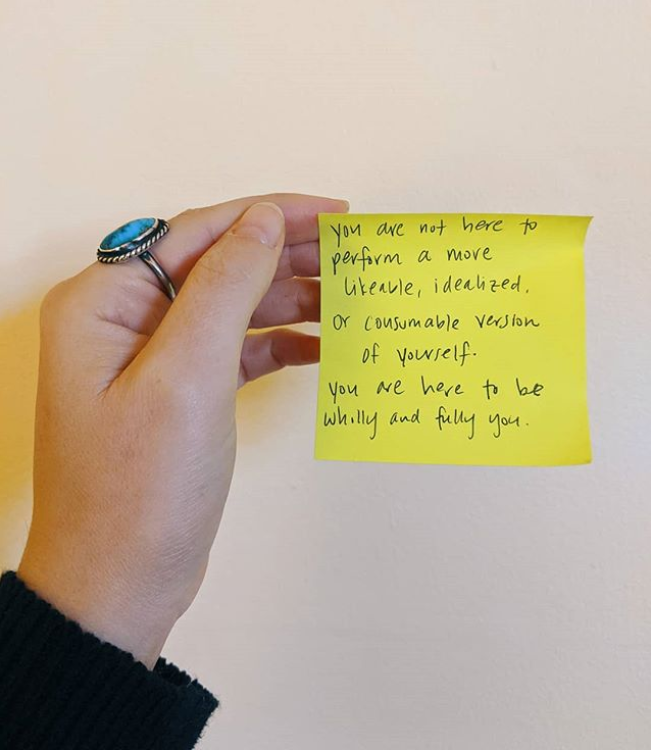 you are not here to
perform a more
likeable, idealized,
or consumable version
of yourself.
you are here to be
wholly and fully you.